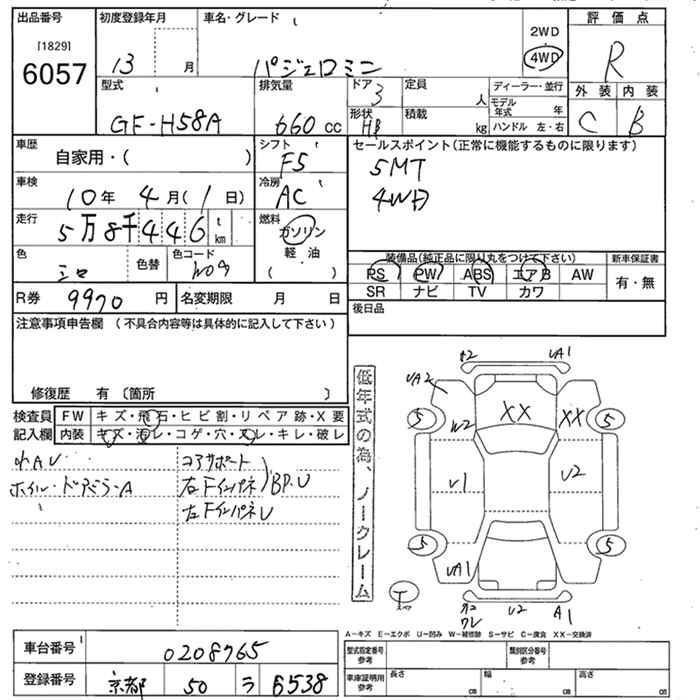 出品番号
[1829]
6057
初度登録年月
13 月
車名・グレード
パジェロミニ
2WD
4WD
評価点
R
型式
GF-H58A
排気量
660 cc
ドア
3
形状
HB
定員
人
積載
kg
ディーラー・並行
モデル年式 年
ハンドル 左・右
外装
C
内装
B
車歴
自家用・( )
シフト
F5
セールスポイント(正常に機能するものに限ります)
5MT
4WD
車検
10年 4月( 1日)
冷房
AC
走行
5万8千446 t km
燃料
ガソリン
軽油
( )
色
シロ
色替
色コード
W09
装備品(純正品に限り丸をつけて下さい)
PS PW ABS エアB AW
SR ナビ TV カワ
新車保証書
有・無
R券 9970 円
名変期限 月 日
後日品
注意事項申告欄(不具合内容等は具体的に記入して下さい)
修復歴 有〔箇所 〕
検査員記入欄
FW キズ・飛石・ヒビ割・リペア跡・X要
内装 キズ・汚レ・コゲ・穴・スレ・キレ・破レ
小AU
コアサポート
右Fインパネ
BP.U
左FインパネU
低年式の為、ノークレーム
A2
UA1
UA2
XX
XX
5
5
W2
U1
U2
5
5
UA1
T
スペア
U2
A1
A-キズ E-エクボ U-凹み W-補修跡 S-サビ C-腐食 XX-交換済
車台番号 0208765
登録番号 京都 50 ラ 6538
型式指定番号 参考
類別区分番号 参考
車庫証明用 参考
長さ cm
幅 cm
高さ cm